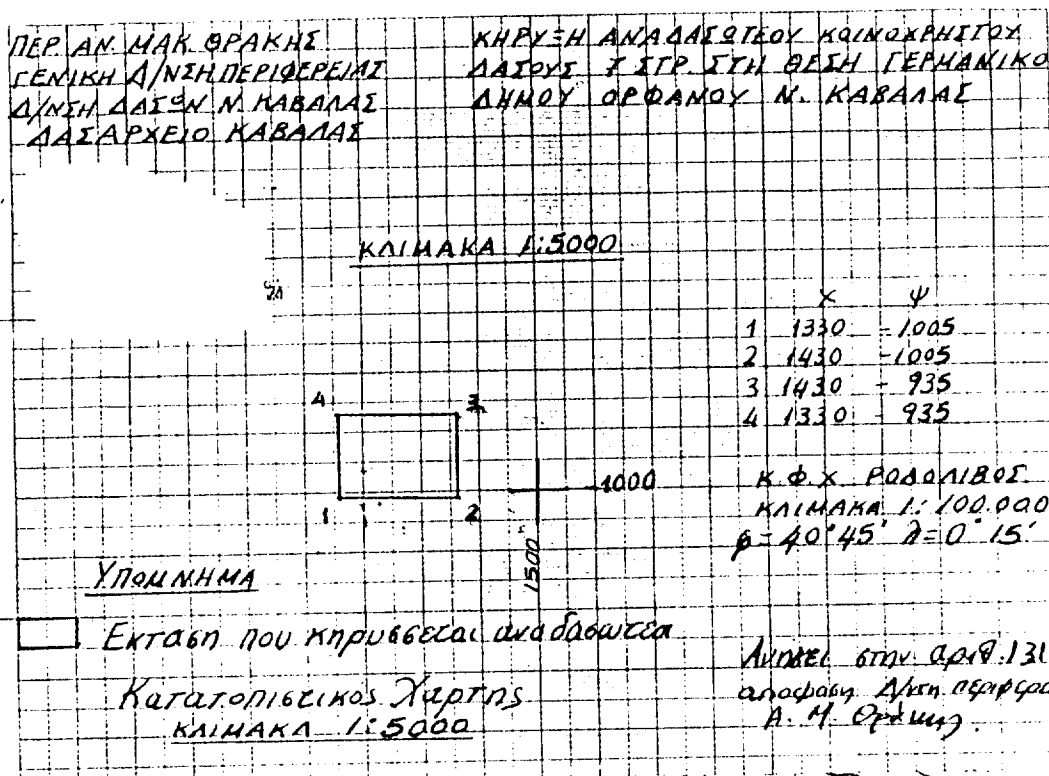 ΠΕΡ. ΑΝ. ΜΑΚ. ΘΡΑΚΗΣ
ΓΕΝΙΚΗ Δ/ΝΣΗ ΠΕΡΙΦΕΡΕΙΑΣ
Δ/ΝΣΗ ΔΑΣΩΝ Ν. ΚΑΒΑΛΑΣ
ΔΑΣΑΡΧΕΙΟ ΚΑΒΑΛΑΣ
ΚΗΡΥΞΗ ΑΝΑΔΑΣΩΤΕΟΥ ΚΟΙΝΟΧΡΗΣΤΟΥ
ΔΑΣΟΥΣ 7 ΣΤΡ. ΣΤΗ ΘΕΣΗ ΓΕΡΜΑΝΙΚΟ
ΔΗΜΟΥ ΟΡΦΑΝΟΥ Ν. ΚΑΒΑΛΑΣ
ΚΛΙΜΑΚΑ 1:5000
Χ Ψ
1 1330 -1005
2 1430 -1005
3 1430 - 935
4 1330 - 935
4 3
1 2
-1000
1500
Κ.Φ.Χ. ΡΟΔΟΛΙΒΟΣ
ΚΛΙΜΑΚΑ 1:100.000
φ=40°45' λ=0°15'
ΥΠΟΜΝΗΜΑ
Εκταση που κηρυσσεται αναδασωτεα
Κατατοπιστικος Χαρτης
ΚΛΙΜΑΚΑ 1:5000
Ανηκει στην αριθ. 131
αποφαση Δ/ντη περιφερ
Α. Μ. Θρακης